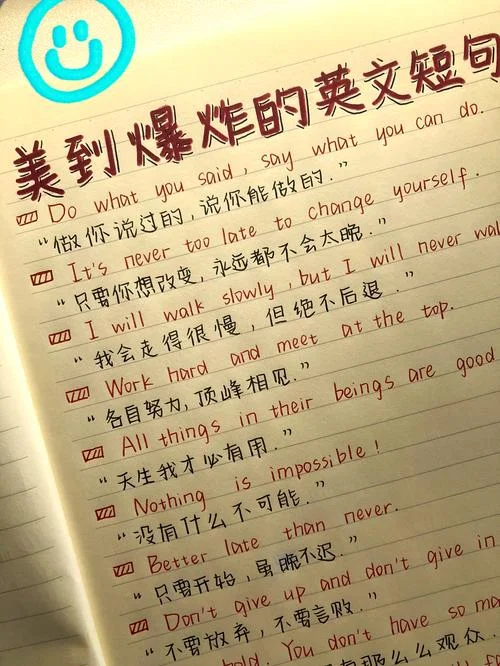 美到爆炸的英文短句
Do what you said, say what you can do.
“做你说过的，说你能做的.”
It's never too late to change yourself.
“只要你想改变，永远都不会太晚.”
I will walk slowly, but I will never wal
“我会走得很慢，但绝不后退.”
Work hard and meet at the top.
“各自努力，顶峰相见.”
All things in their beings are good
“天生我才必有用.”
Nothing is impossible!
“没有什么不可能.”
Better late than never.
“只要开始，虽晚不迟.”
Don't give up and don't give in
“不要放弃，不要言败.”
hold. You don't have so ma
那么多观众.